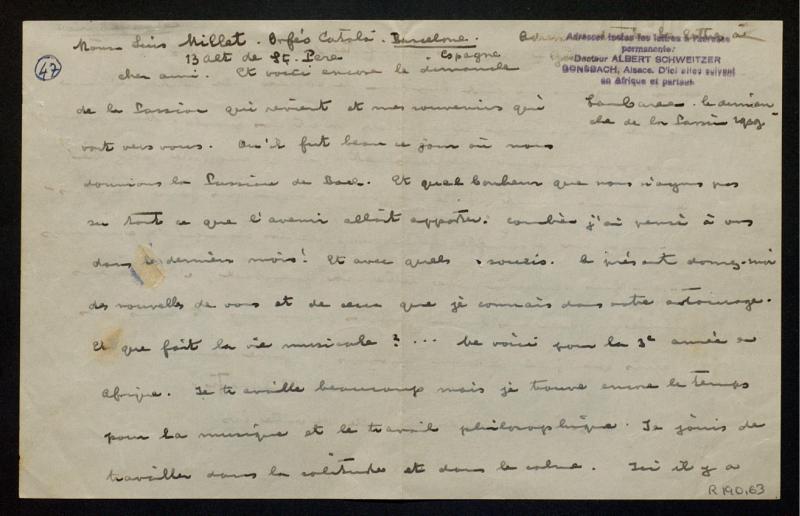 47
Mons Luis Millet. Orfeó Català. Barcelone.
13 alt de St. Pere Espagne
Adresser toutes les lettres à l'adresse
permanente:
Docteur ALBERT SCHWEITZER
GÜNSBACH, Alsace. D'ici elles suivent
en Afrique et partout.
Lambarene. le diman-
che de la Passion 1939
cher ami. Et voici encore le dimanche
de la Passion qui revient et mes souvenirs qui
vont vers vous. Qu'il fut beau ce jour où nous
donnions la Passion de Bach. Et quel bonheur que nous n'ayons pas
su tout ce que l'avenir allait apporter. combien j'ai pensé à vous
dans les derniers mois! Et avec quels soucis. A présent donnez-moi
des nouvelles de vous et de ceux que je connais dans votre entourage.
Et que fait la vie musicale? ... Me voici pour la 3e année en
Afrique. Je travaille beaucoup mais je trouve encore le temps
pour la musique et le travail philosophique. Je jouis de
travailler dans la solitude et dans le calme. Ici il y a
R 190,63